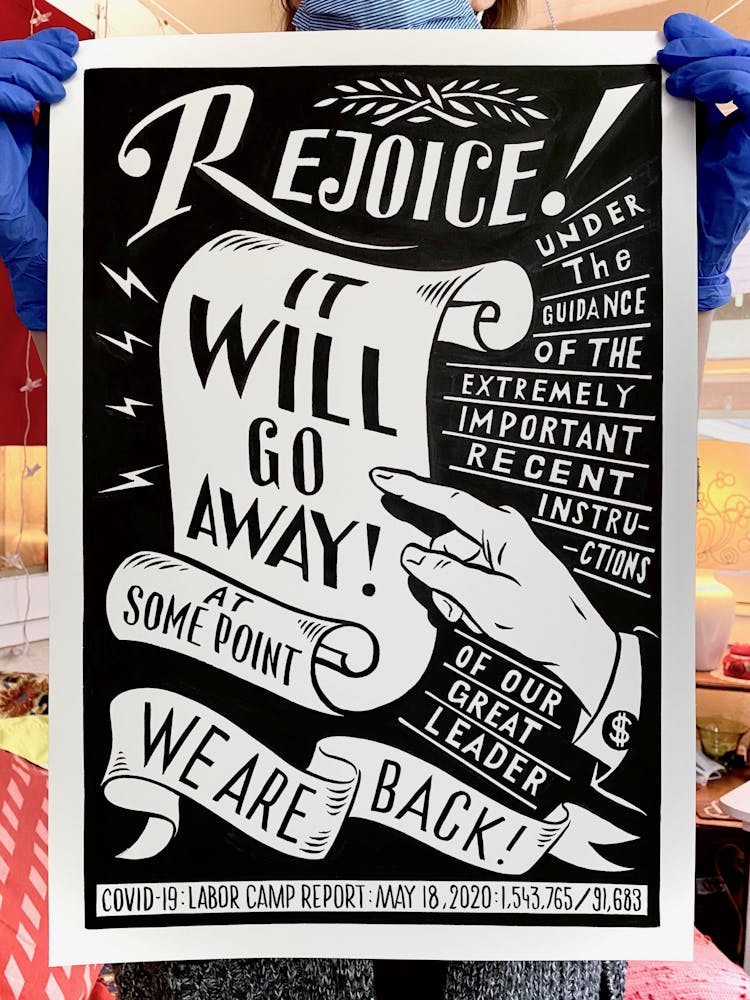 REJOICE!
IT
WILL
GO
AWAY!
AT
SOME POINT
UNDER
The
GUIDANCE
OF THE
EXTREMELY
IMPORTANT
RECENT
INSTRU-
-CTIONS
OF OUR
GREAT
LEADER
$
WE ARE
BACK!
COVID-19: LABOR CAMP REPORT: MAY 18, 2020: 1,543,765/91,683